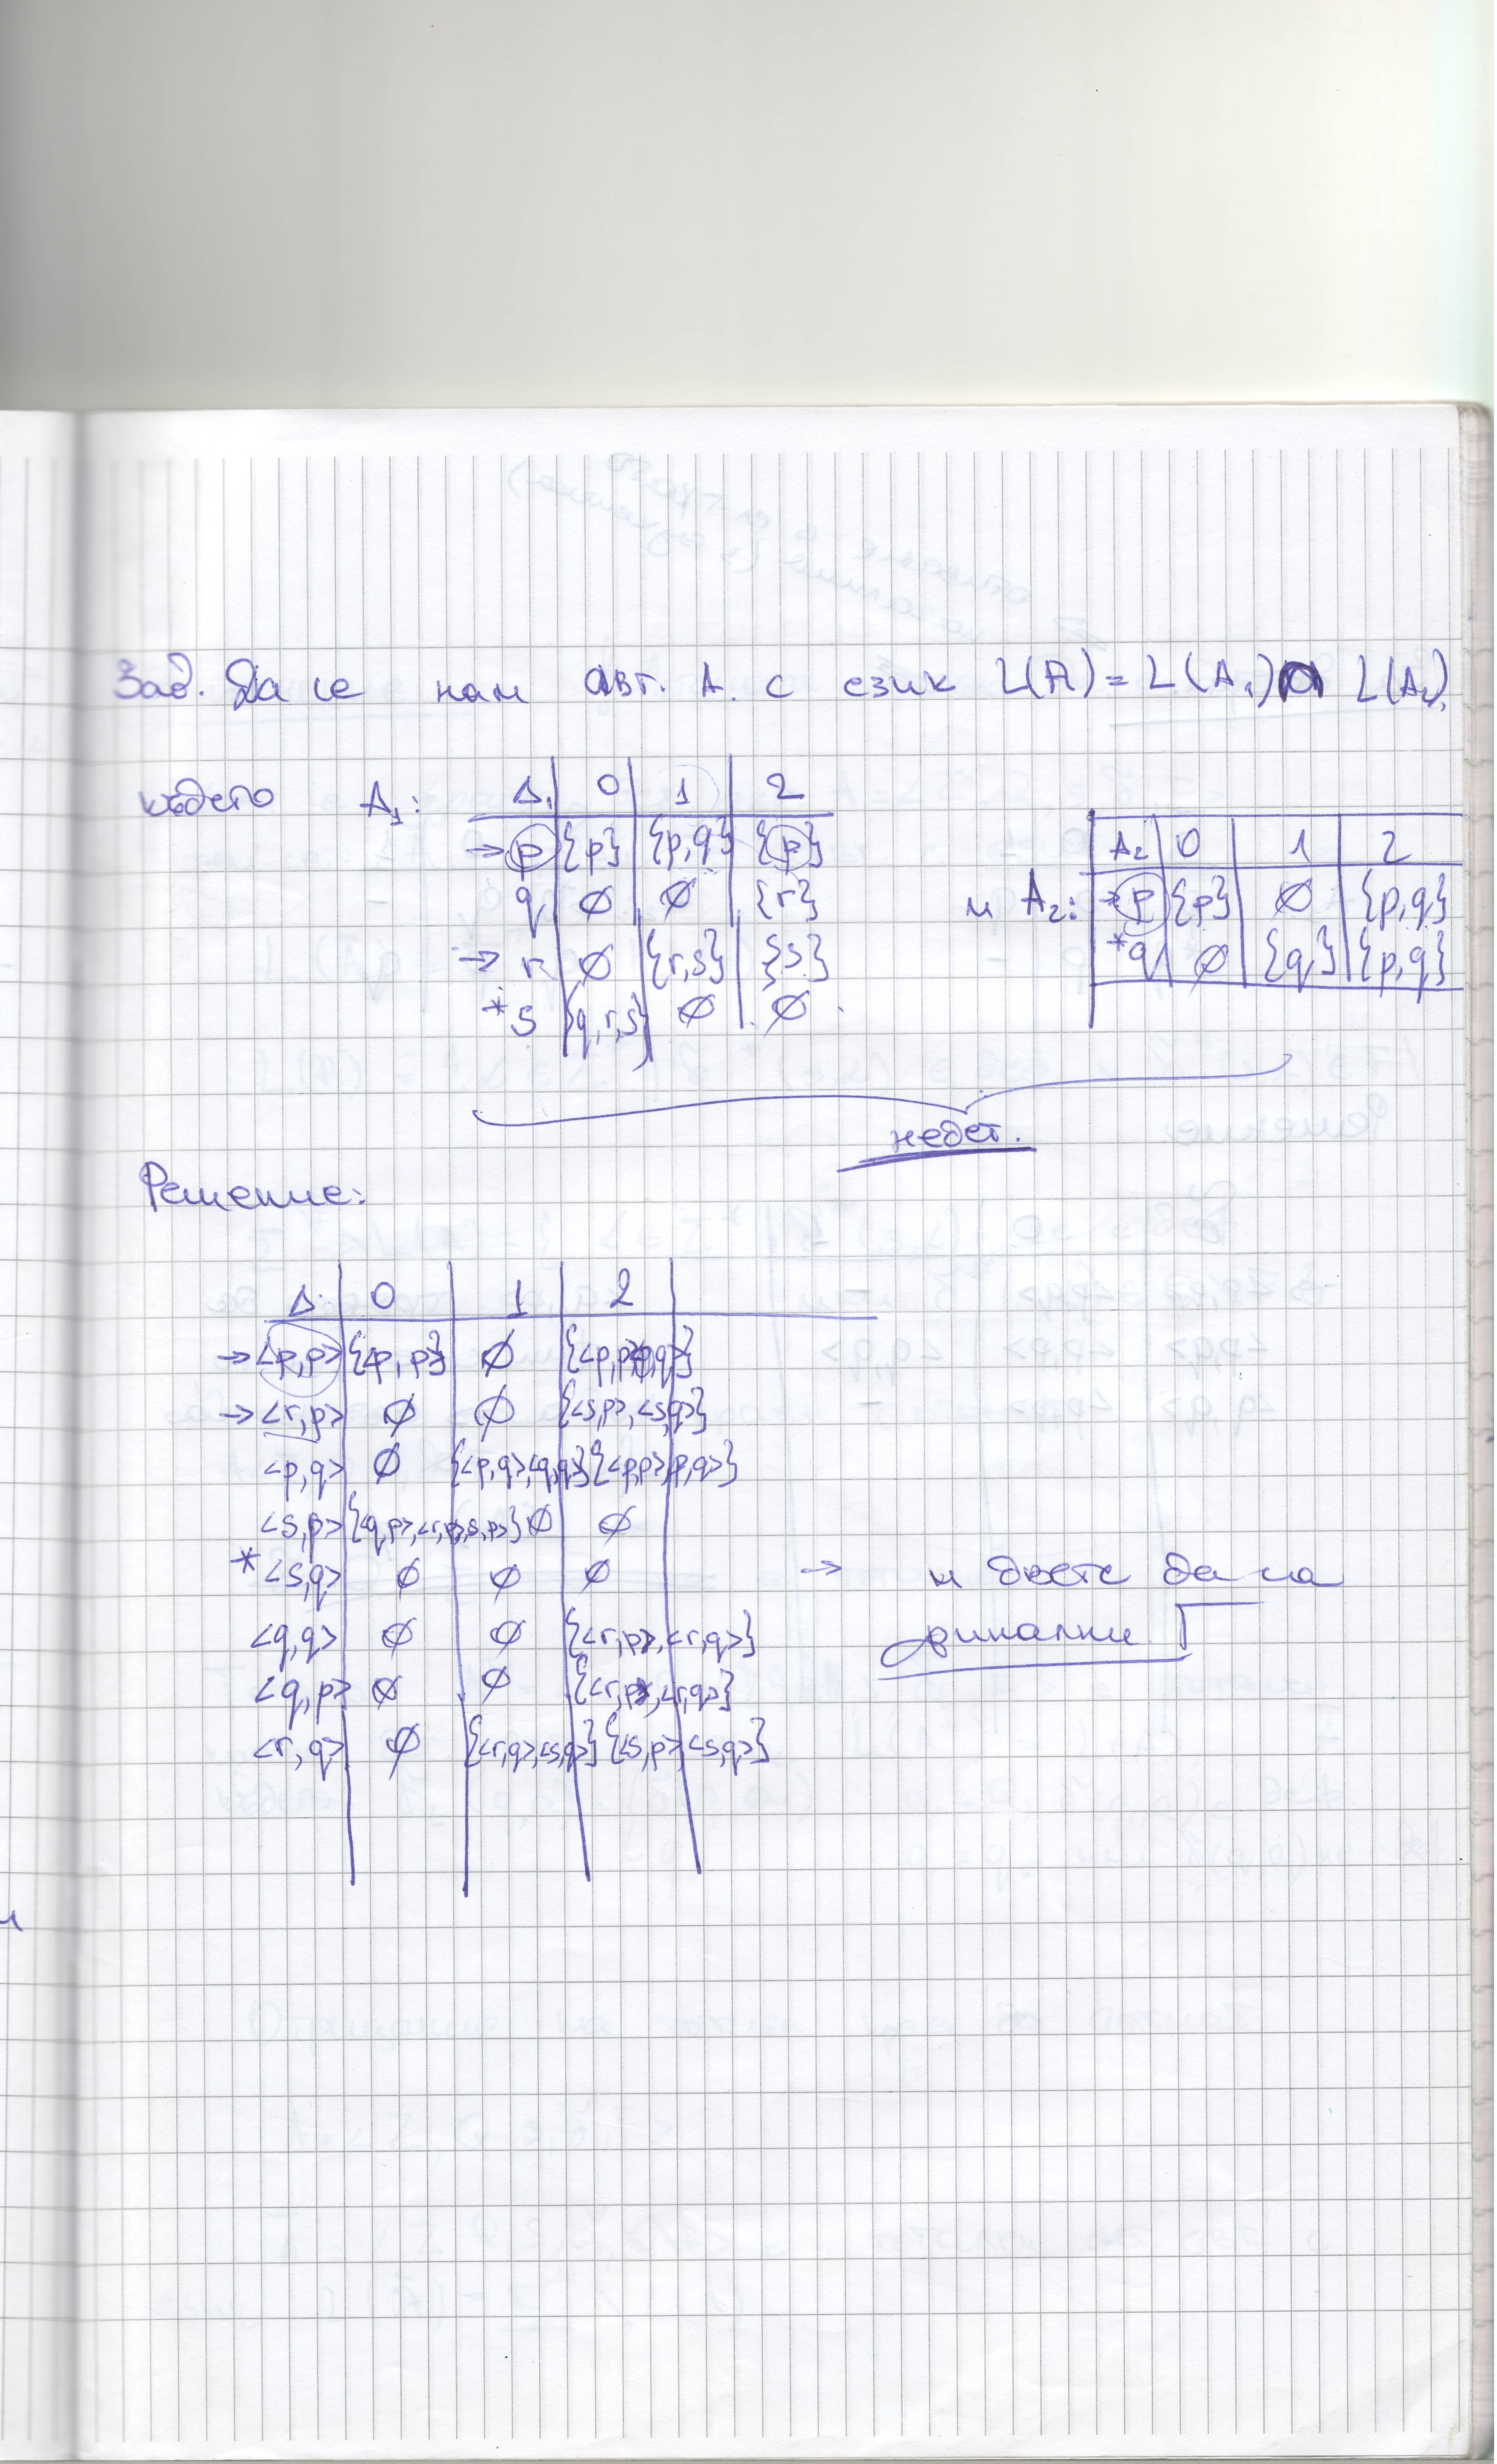 Зад. Да се нам авт. A. с език L(A) = L(A₁) ∩ L(A₂),
където A₁:
Δ₁ | 0 | 1 | 2
→ p | {p} | {p,q} | {p}
q | ∅ | ∅ | {r}
→ r | ∅ | {r,s} | {s}
* s | {q,r,s} | ∅ | ∅
и A₂:
A₂ | 0 | 1 | 2
→ p | {p} | ∅ | {p,q}
* q | ∅ | {q} | {p,q}
недет.
Решение:
Δ | 0 | 1 | 2
→ <p,p> | {<p,p>} | ∅ | {<p,p><p,q>}
→ <r,p> | ∅ | ∅ | {<s,p>,<s,q>}
<p,q> | ∅ | {<p,q>,<q,q>} | {<p,p>,<p,q>}
<s,p> | {<q,p>,<r,p>,<s,p>} | ∅ | ∅
* <s,q> | ∅ | ∅ | ∅ → и двете да са
финални
<q,q> | ∅ | ∅ | {<r,p>,<r,q>}
<q,p> | ∅ | ∅ | {<r,p>,<r,q>}
<r,q> | ∅ | {<r,q>,<s,q>} | {<s,p>,<s,q>}